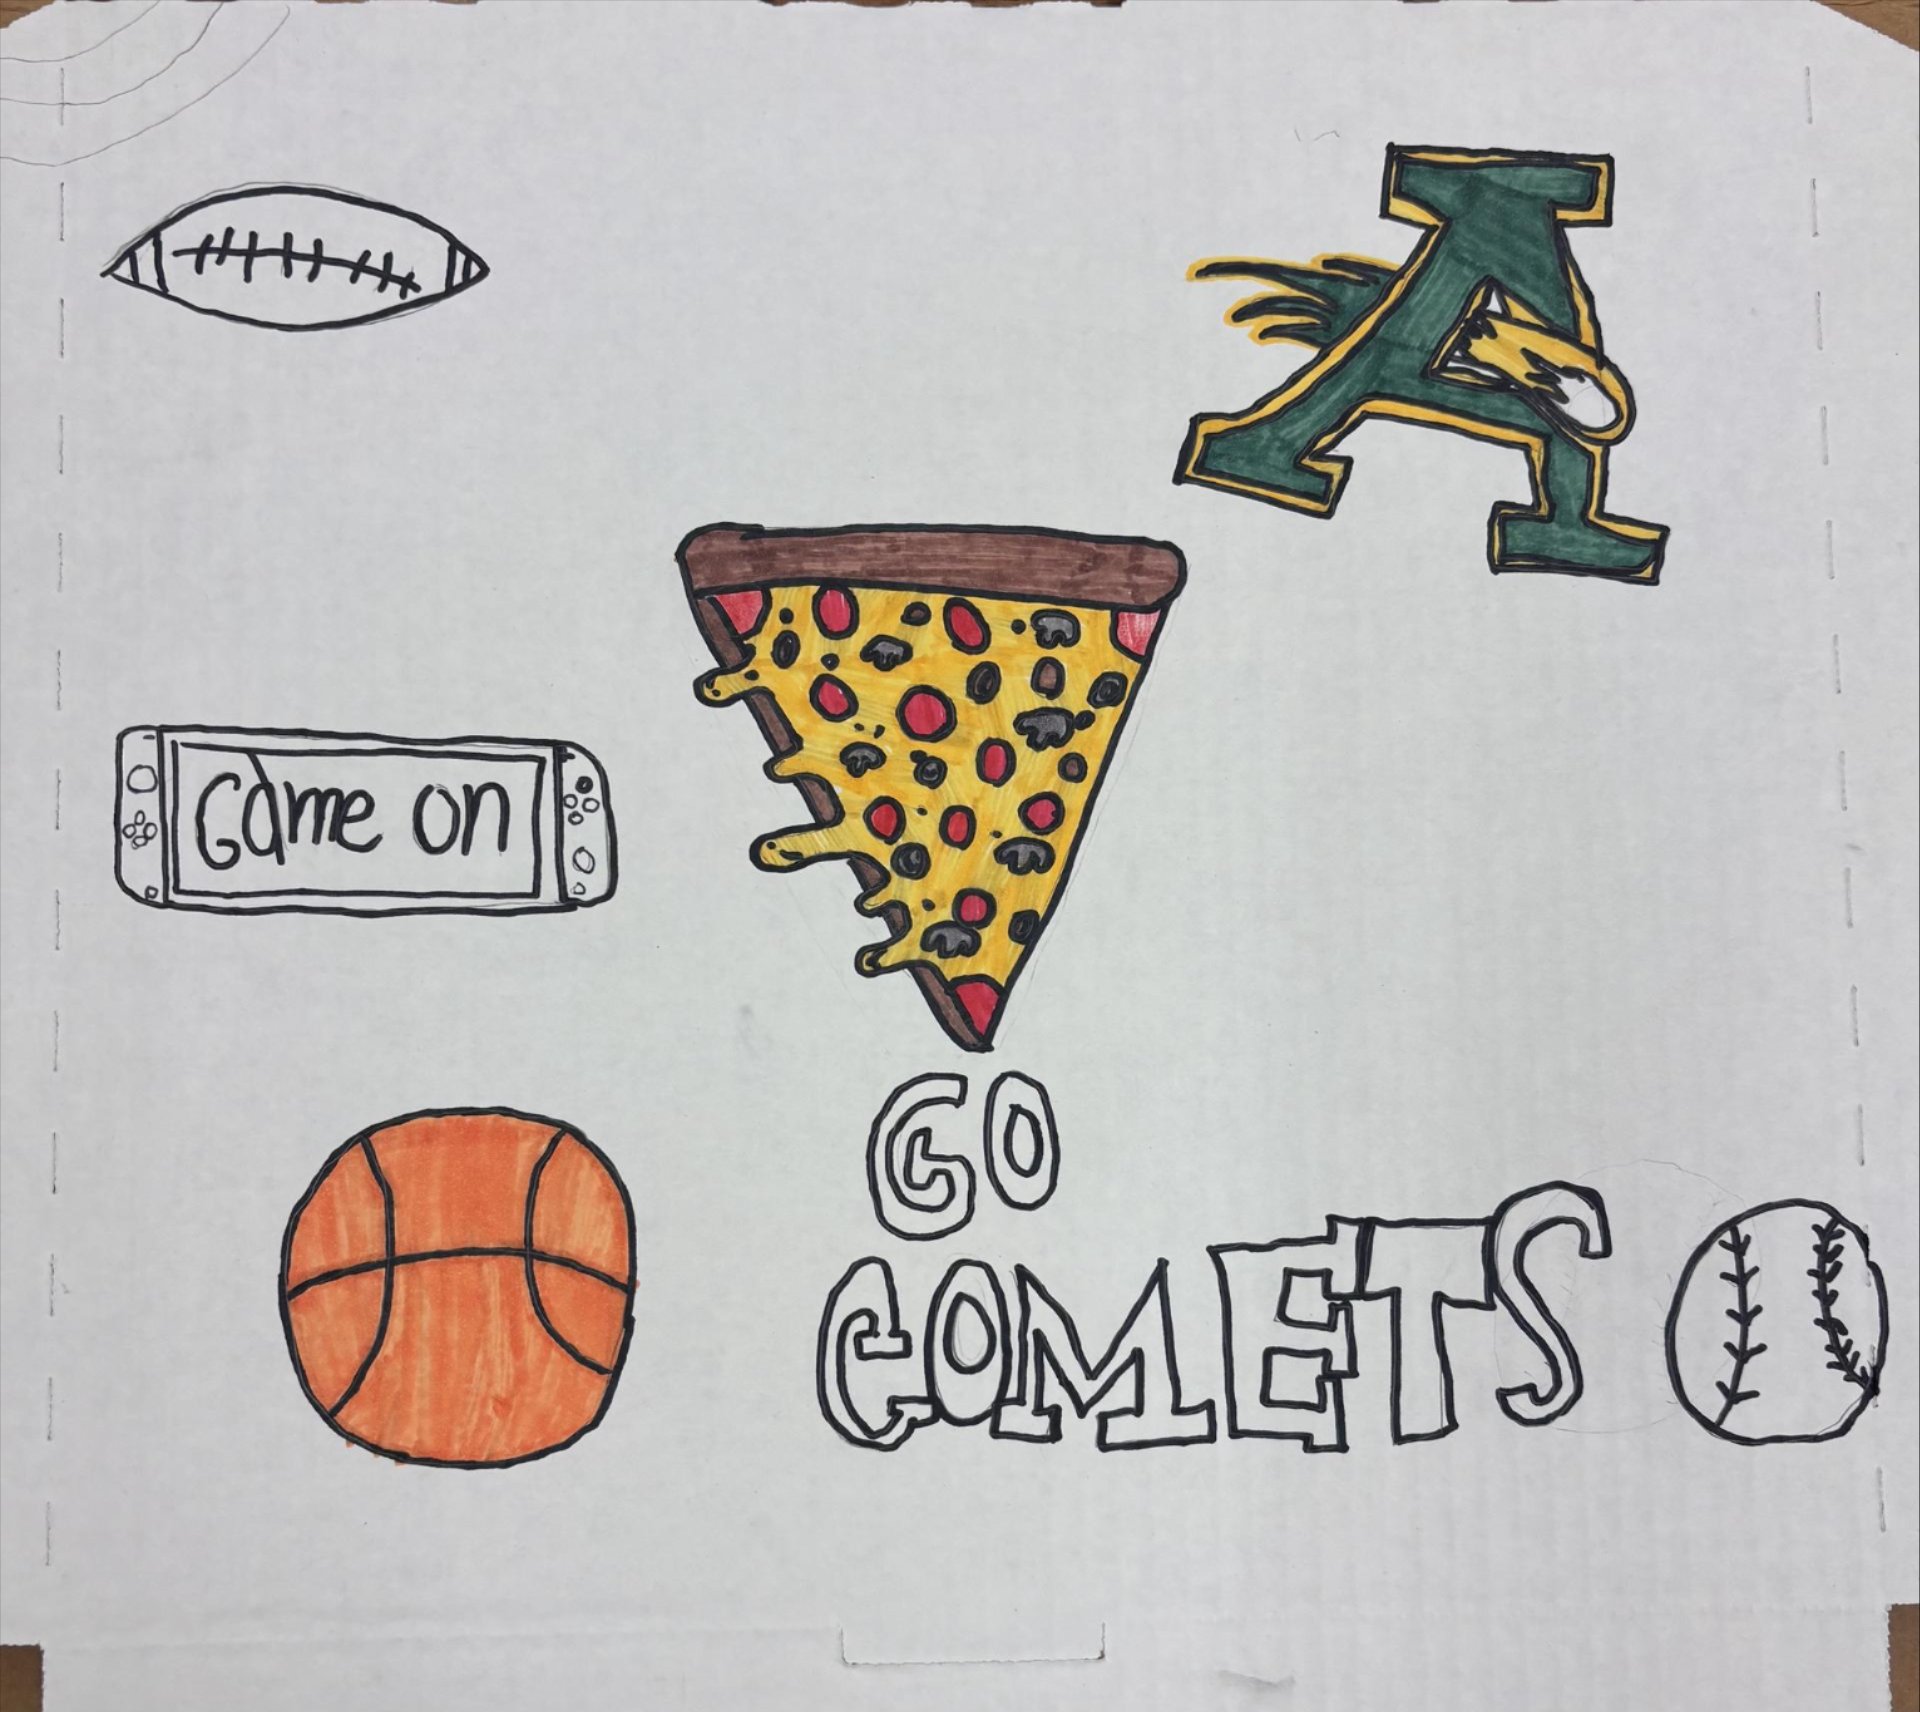 A
Game on
GO
COMETS